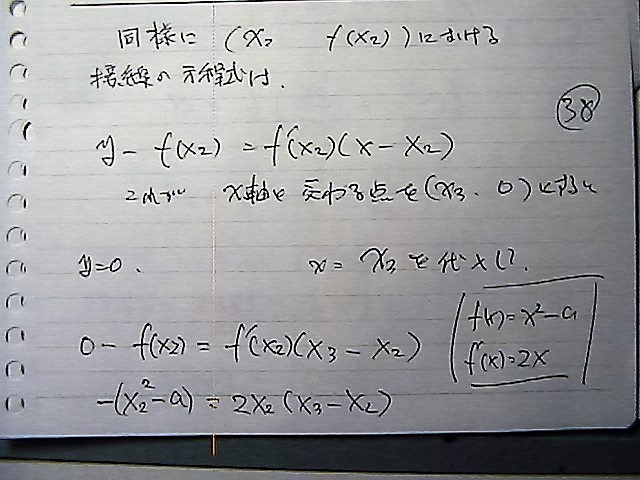 同様に (x₂ f(x₂))における
接線の方程式は.
38
y - f(x₂) = f'(x₂)(x - x₂)
これが x軸と交わる点を(x₃. 0)とすると
y=0. x = x₃を代入し.
f(x)=x²-a
0 - f(x₂) = f'(x₂)(x₃ - x₂)
f'(x)=2x
-(x₂²-a) = 2x₂(x₃-x₂)